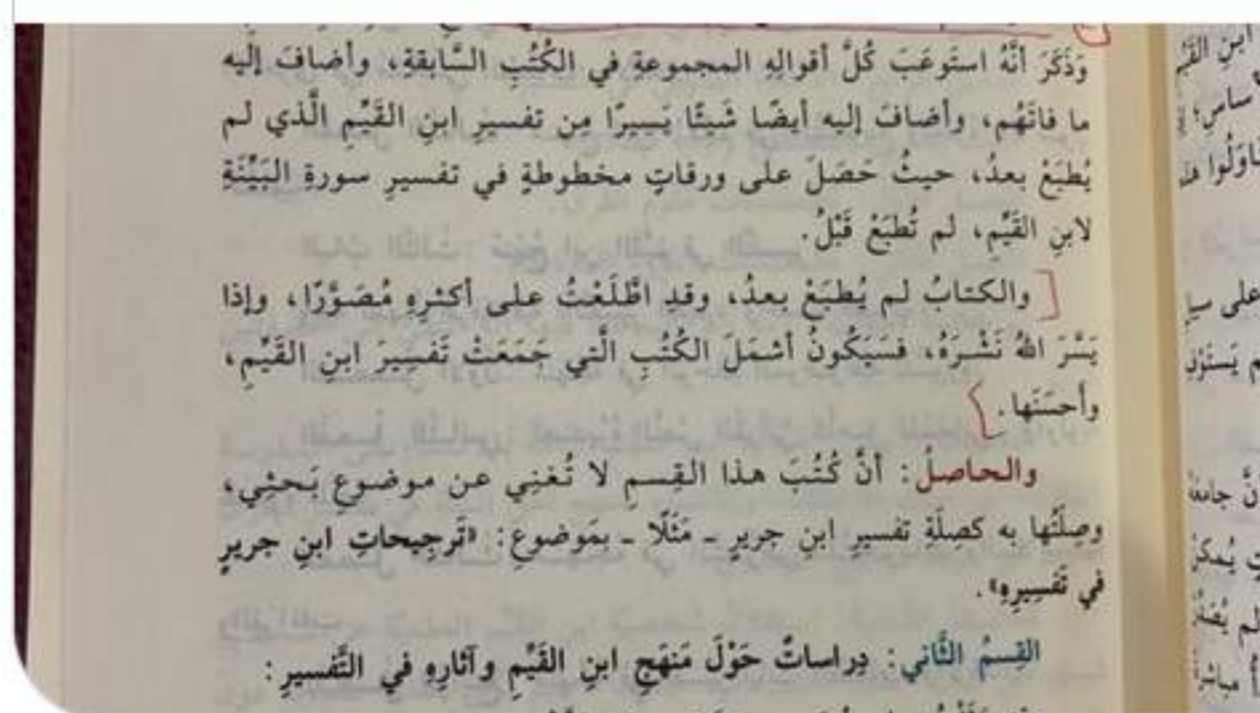 وَذَكَرَ أنَّهُ استَوعَبَ كُلَّ أقوالِهِ المجموعةِ في الكُتُبِ السَّابقةِ، وأضافَ إليه
ما فاتَهُم، وأضافَ إليه أيضًا شَيئًا يَسِيرًا مِن تفسيرِ ابنِ القَيِّمِ الَّذي لم
يُطبَعْ بعدُ، حيثُ حَصَلَ على ورقاتٍ مخطوطةٍ في تفسيرِ سورةِ البَيِّنَةِ
لابنِ القَيِّمِ، لم تُطبَعْ قَبْلُ.
والكتابُ لم يُطبَعْ بعدُ، وقدِ اطَّلَعْتُ على أكثرِهِ مُصَوَّرًا، وإذا
يَسَّرَ اللهُ نَشْرَهُ، فسَيَكُونُ أشمَلَ الكُتُبِ الَّتي جَمَعَتْ تَفسِيرَ ابنِ القَيِّمِ،
وأحسَنَها.
والحاصلُ: أنَّ كُتُبَ هذا القِسمِ لا تُغنِي عن موضوعِ بَحثِي،
وصِلَتُها به كصِلَةِ تفسيرِ ابنِ جريرٍ ـ مَثَلًا ـ بمَوضوعِ: «تَرجِيحاتِ ابنِ جريرٍ
في تَفسِيرِهِ».
القِسمُ الثَّاني: دِراساتٌ حَوْلَ مَنهَجِ ابنِ القَيِّمِ وآثارِهِ في التَّفسيرِ:
ابنِ القَيِّمِ
ساسٍ؛
على
جامعة
مباشرة